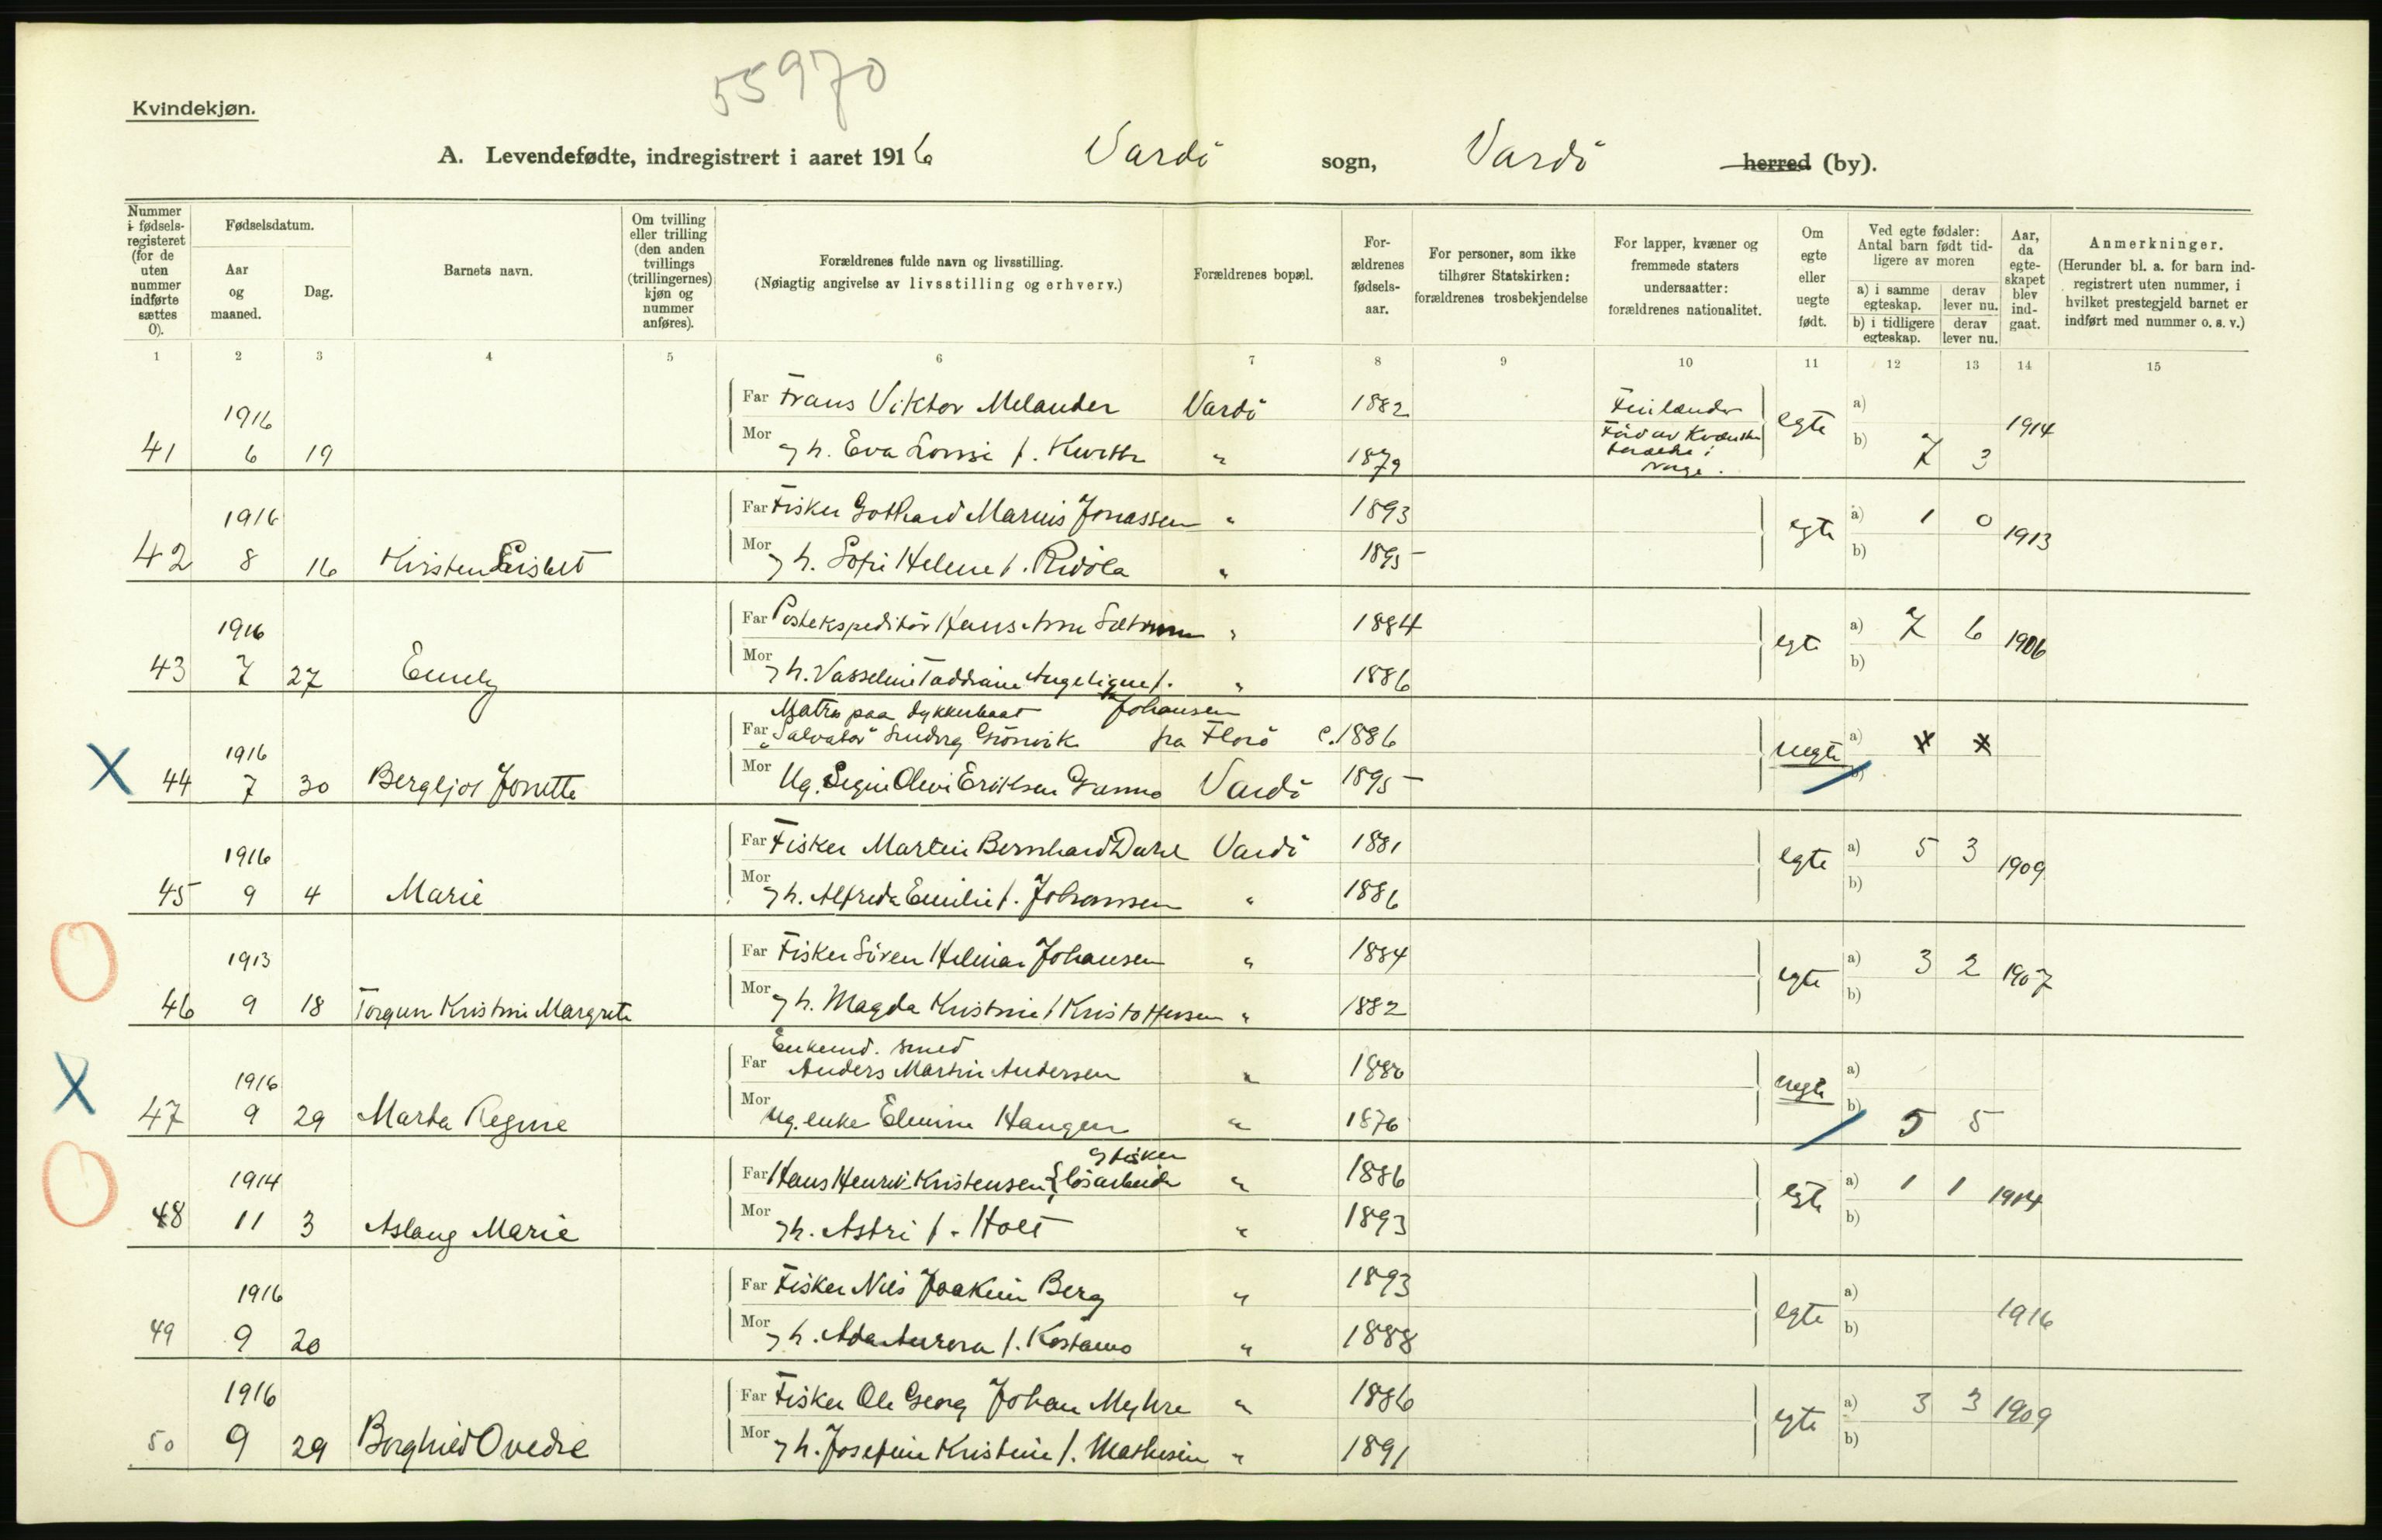 55970
Kvindekjøn.
A. Levendefødte, indregistrert i aaret 1916 Vardö sogn, Vardö herred (by).
Nummer i fødsels-registeret (for de uten nummer indførte sættes 0).
Fødselsdatum.
Aar og maaned.
Dag.
Barnets navn.
Om tvilling eller trilling (den anden tvillings (trillingernes) kjøn og nummer anføres).
Forældrenes fulde navn og livsstilling.
(Nøiagtig angivelse av livsstilling og erhverv.)
Forældrenes bopæl.
For-ældrenes fødsels-aar.
For personer, som ikke tilhører Statskirken: forældrenes trosbekjendelse
For lapper, kvæner og fremmede staters undersaatter: forældrenes nationalitet.
Om egte eller uegte født.
Ved egte fødsler: Antal barn født tid-ligere av moren
a) i samme egteskap. derav lever nu.
b) i tidligere egteskap. derav lever nu.
Aar, da egte-skapet blev ind-gaat.
Anmerkninger.
(Herunder bl. a. for barn ind-registrert uten nummer, i hvilket prestegjeld barnet er indført med nummer o. s. v.)
1 2 3 4 5 6 7 8 9 10 11 12 13 14 15
Far Frans Viktor Melander Vardö 1882
1916 egte a) 1914
41 6 19 Mor h. Eva f. " 1879 b) 7 3
Far Fisker Gothard Marius Jonassen " 1893
1916 egte a) 1 0 1913
42 8 16 Kirsten Lisbet Mor h. Sofie Helene f. " 1895 b)
Far Postekspeditör Hans " 1884
1916 egte a) 7 6 1906
43 7 27 Emely Mor h. Angelique f. Johansen " 1886 b)
Matros paa dykkerbaat
Far "Salvator" Grönvik fra Florö c. 1886
1916 uegte a)
X 44 7 30 Bergljot Jonette Mor Ug. Eriksen Vardö 1895 b)
Far Fisker Martin Bernhard Dahl Vardö 1881
1916 egte a) 5 3 1909
45 9 4 Marie Mor h. Alfreda Emilie f. Johannsen " 1886 b)
Far Fisker Sören Hilmar Johansen " 1884
1913 egte a) 3 2 1907
46 9 18 Torgun Kristine Margrete Mor h. Magda Kristine f. Kristoffersen " 1882 b)
Enkemd. smed
Far Anders Martin Andersen " 1880
1916 uegte a)
X 47 9 29 Marta Regine Mor Ug. enke Elmine Haugen " 1876 b) 5 5
Far Hans Henrik Kristensen lösarbeider og fisker " 1886
1914 egte a) 1 1 1914
48 11 3 Aslaug Marie Mor h. Astri f. Holt " 1893 b)
Far Fisker Nils Joakim Berg " 1893
1916 egte a) 1916
49 9 20 Mor h. Ada Aurora f. Kostamo " 1888 b)
Far Fisker Ole Georg Johan Myhre " 1886
1916 egte a) 3 3 1909
50 9 29 Borghild Ovedie Mor h. Josefine Kristine f. Mathisen " 1891 b)